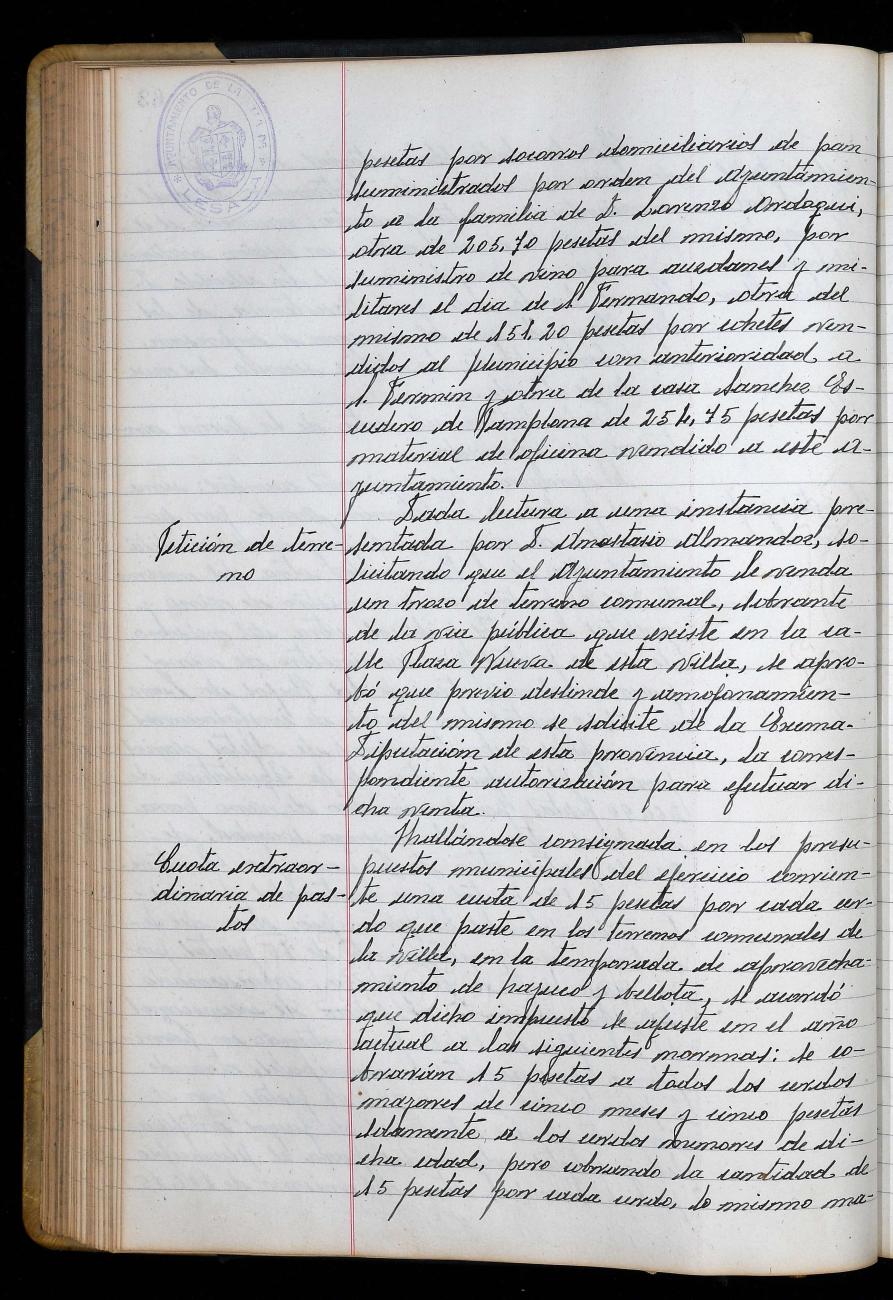 AYUNTAMIENTO DE LA VILLA
LESACA
pesetas por socorros domiciliarios de pan
suministrados por orden del Ayuntamien-
to a la familia de D. Lorenzo Ordoqui,
otra de 205,70 pesetas del mismo, por
suministro de vino para auzolanes y mi-
litares el dia de S. Fernando, otra del
mismo de 151,20 pesetas por cohetes ven-
didos al Municipio con anterioridad a
S. Fermin y otra de la casa Sanchez Es-
cudero de Pamplona de 254,75 pesetas por
material de oficina vendido a este A-
yuntamiento.
Petición de terre-
no
Dada lectura a una instancia pre-
sentada por D. Anastasio Almandoz, so-
licitando que el Ayuntamiento le venda
un trozo de terreno comunal, sobrante
de la via pública que existe en la ca-
lle Plaza Nueva de esta Villa, se apro-
bó que previo deslinde y amojonamien-
to del mismo se solicite de la Excma.
Diputación de esta provincia, la corres-
pondiente autorización para efectuar di-
cha venta.
Cuota extraor-
dinaria de pas-
tos
Hallándose consignada en los presu-
puestos municipales del ejercicio corrien-
te una cuota de 15 pesetas por cada cer-
do que paste en los terrenos comunales de
la Villa, en la temporada de aprovecha-
miento de hayuco y bellota, se acordó
que dicho impuesto se ajuste en el año
actual a las siguientes normas: se co-
brarán 15 pesetas a todos los cerdos
mayores de cinco meses y cinco pesetas
solamente a los cerdos menores de di-
cha edad, pero cobrando la cantidad de
15 pesetas por cada cerdo, lo mismo ma-